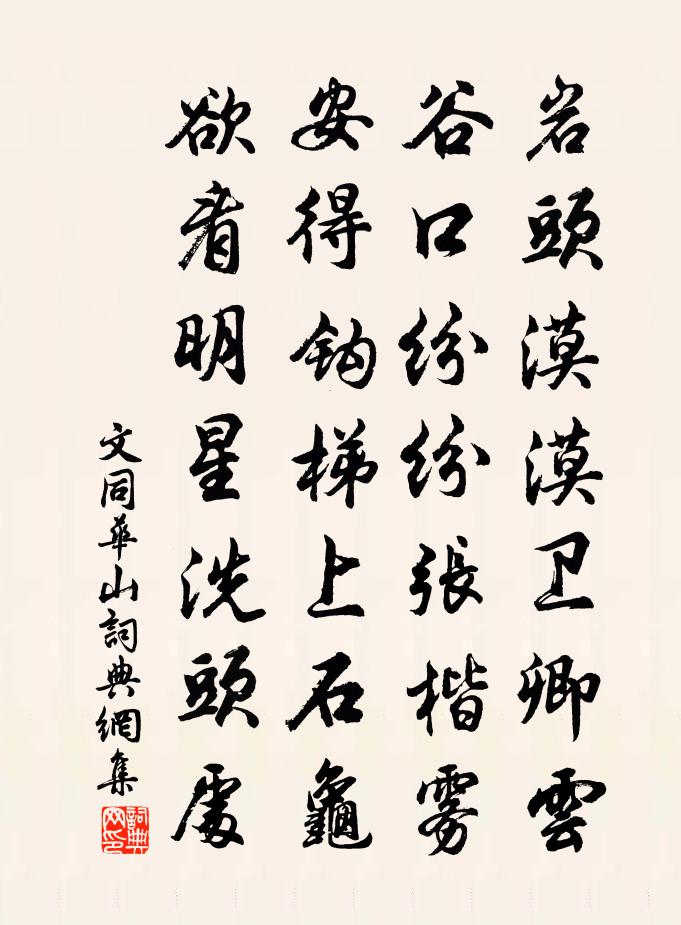 岩頭漠漠卫卿雲
谷口紛紛張楷雾
安得鈎梯上石龜
欲看明星洗頭處
文同華山詞典網集
詞典网印